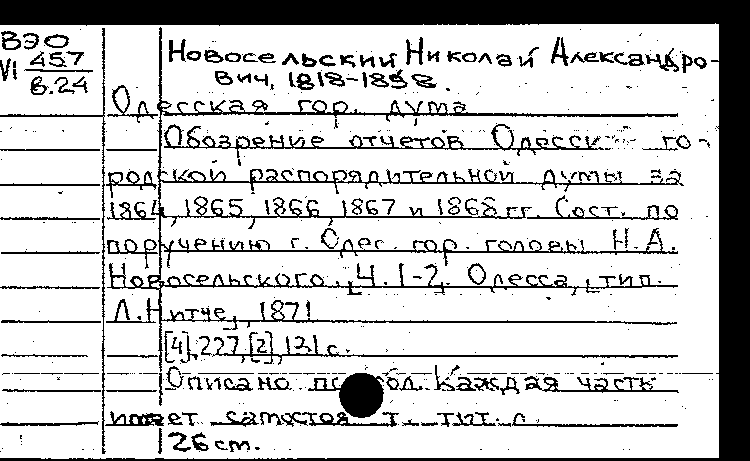 ВЭО
VI 457
в.24
Новосельский Николай Александро-
вич, 1818-1898.
Одесская гор. дума
Обозрение отчетов Одесск го-
родской распорядительной думы за
1864, 1865, 1866, 1867 и 1868 гг. Сост. по
поручению г. Одес. гор. головы Н.А.
Новосельского. Ч. 1-2. Одесса, тип.
Л. Нитче, 1871
[4], 227, [2], 131 с.
Описано по обл. Каждая часть
имеет самостоя т. тит. л.
26 см.